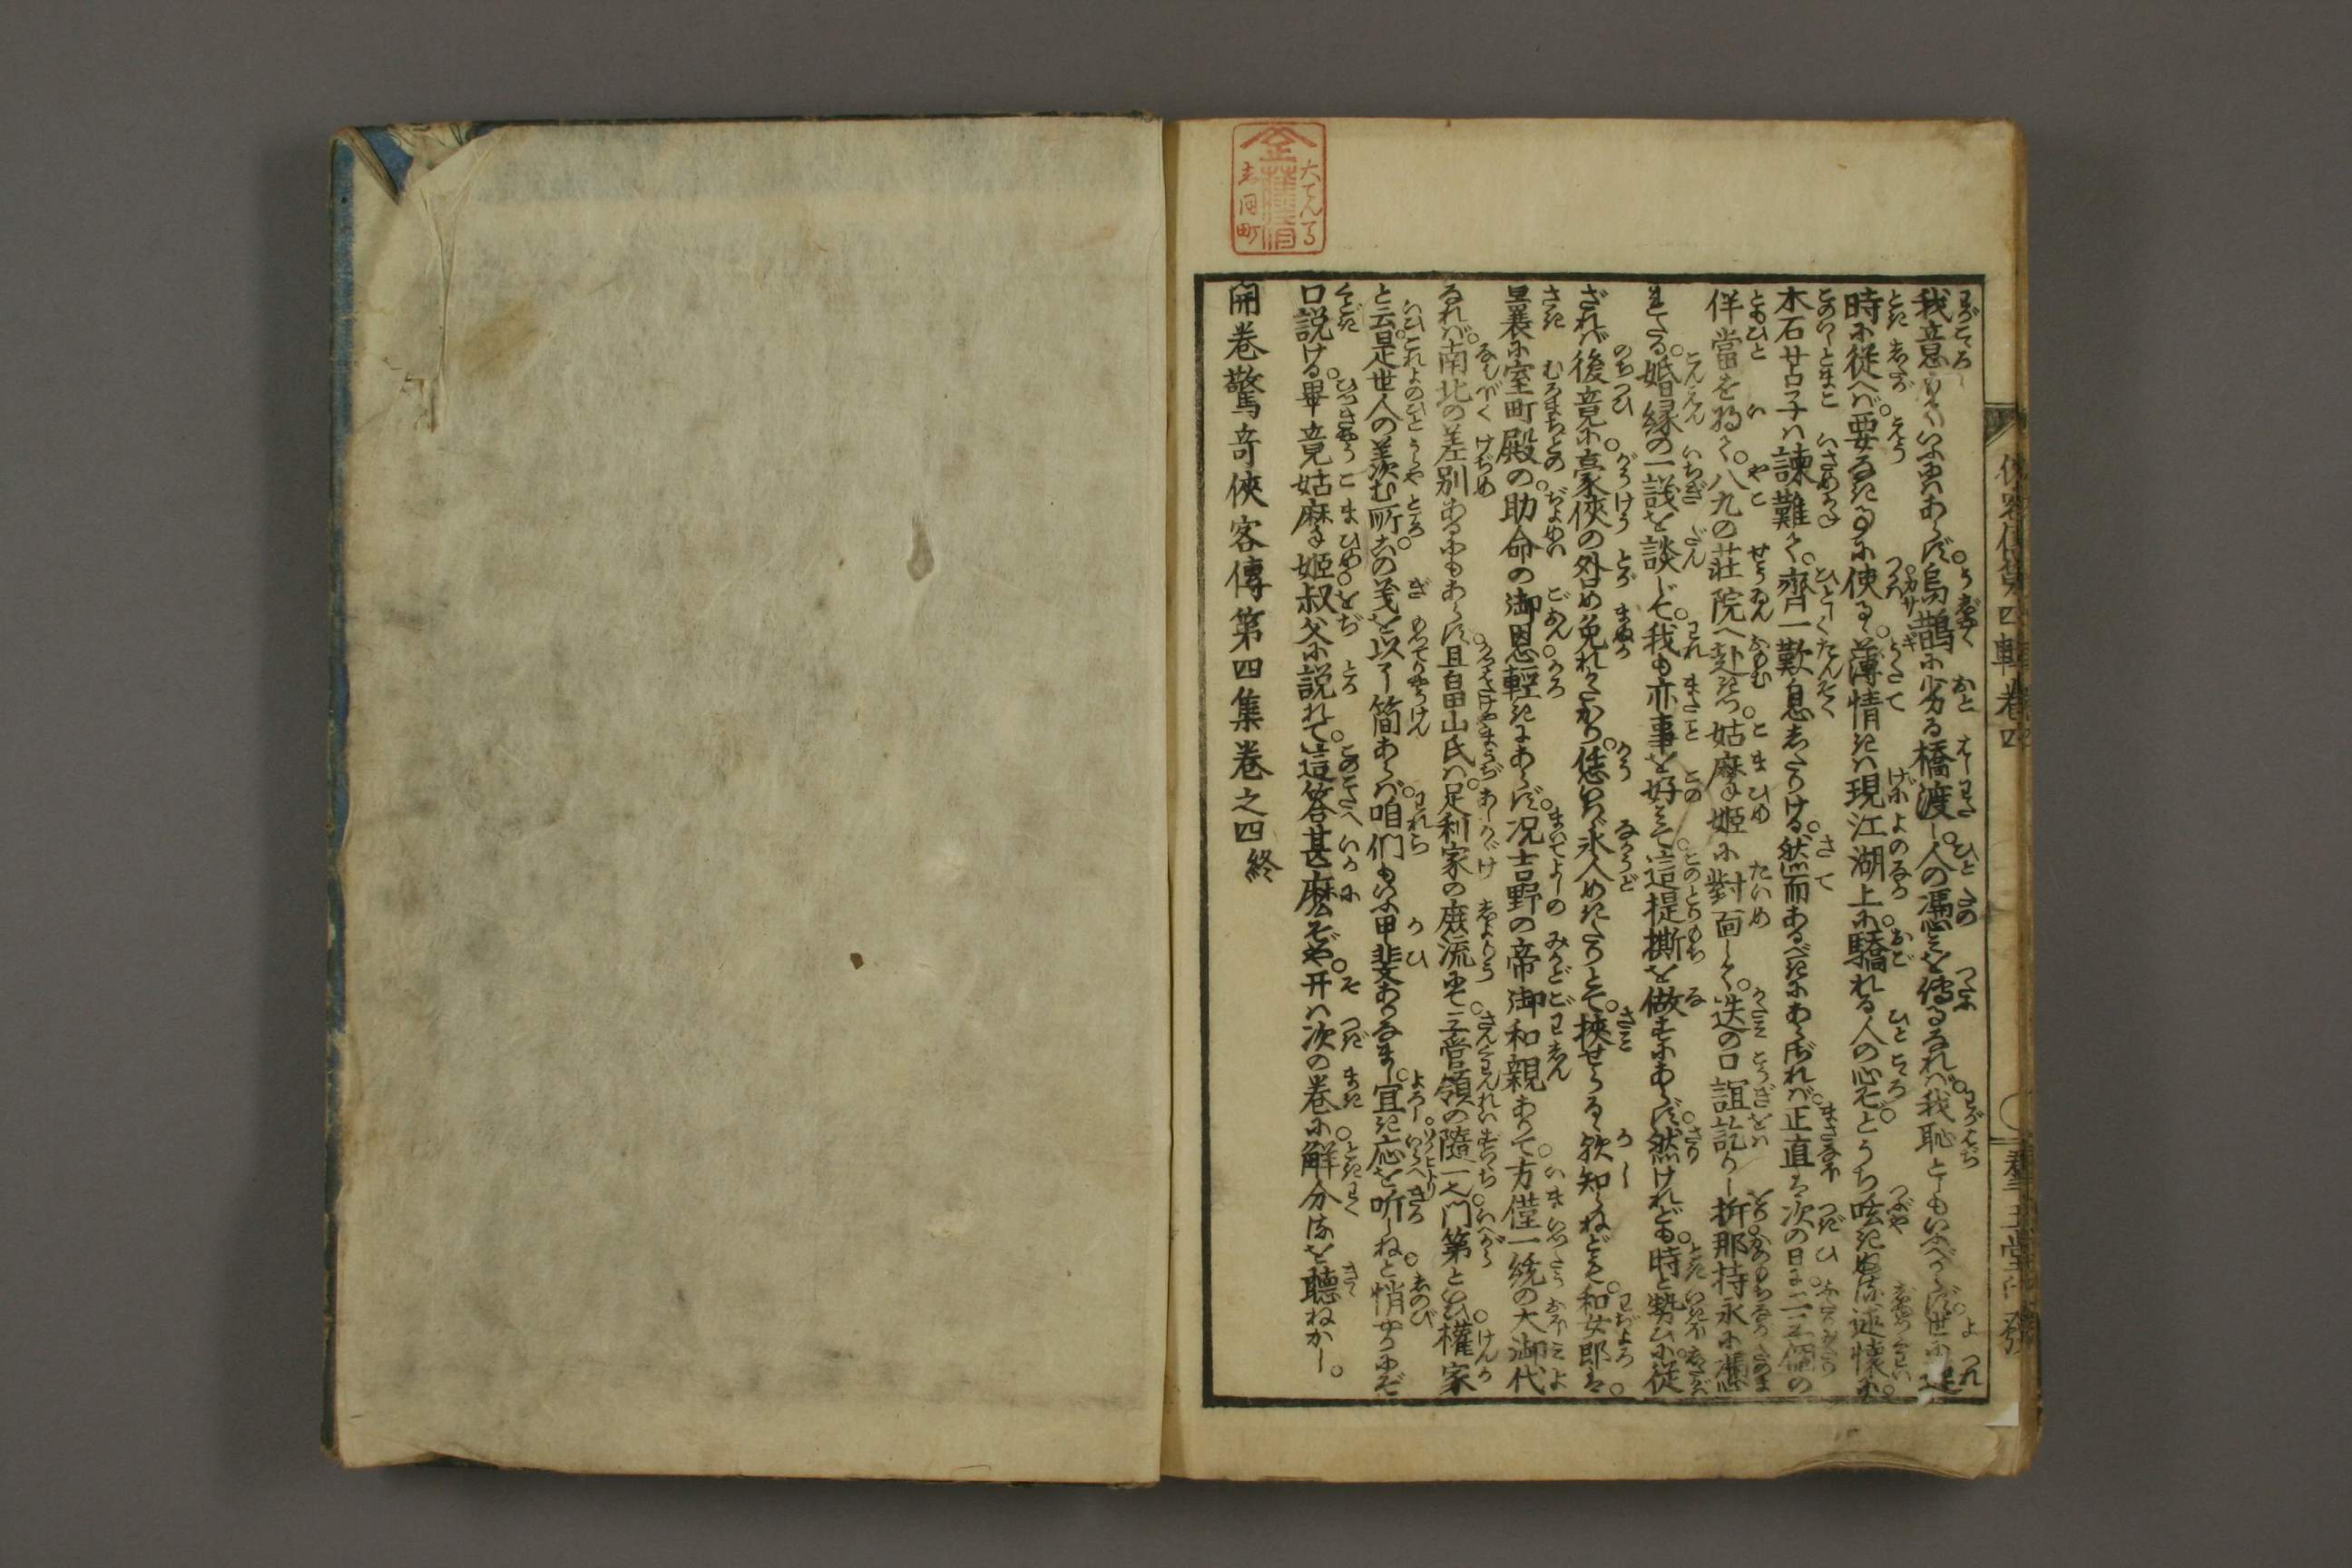 我意もていふにはあらず。烏鵲に劣る橋渡し。人の憑みを傳るなれば。我恥ともいふべからず。世に連
時に従へば。要なき事に使るゝ。薄情きは現江湖上に。驕れる人の心ぞとうち呟きぬる述懐に。
木石廿子は諫難て。齊一歎息したりける。然而あるべきにあらざれば。正直は次の日に。二三個の
伴當を将て。八九の荘院へ赴きつ。姑麻姫に對面して。迭の口誼訖りし折。那持永に憑
れたる。婚縁の一議を談じて。我も亦事を好みて。這提撕を做すにあらず。然けれども。時と勢ひに。従
ざれば後竟に。豪侠の外め免れがたかり。恁いへば氷人めきたりとて。挾せらるゝ歟知らねども。和女郎は
曩に室町殿の。助命の御恩輕きにあらず。况吉野の帝御和親ありて。方僅一統の大御代
なれば。南北の差別あるにもあらず。且畠山氏は。足利家の庶流にて。三管領の随一也。門第といひ權家
と云。是世人の羨む所。この義を以了簡あらば。咱們もいふ甲斐あるなまし。宜き応を听ねと悄やかにぞ
口説ける。畢竟姑麻姫。叔父に説れて。這答甚麽ぞや。开は次の巻に。解分るを聴ねかし。
開巻驚奇侠客傳第四集巻之四終
侠客傳第四輯巻四
群玉堂
大てんま
志同町